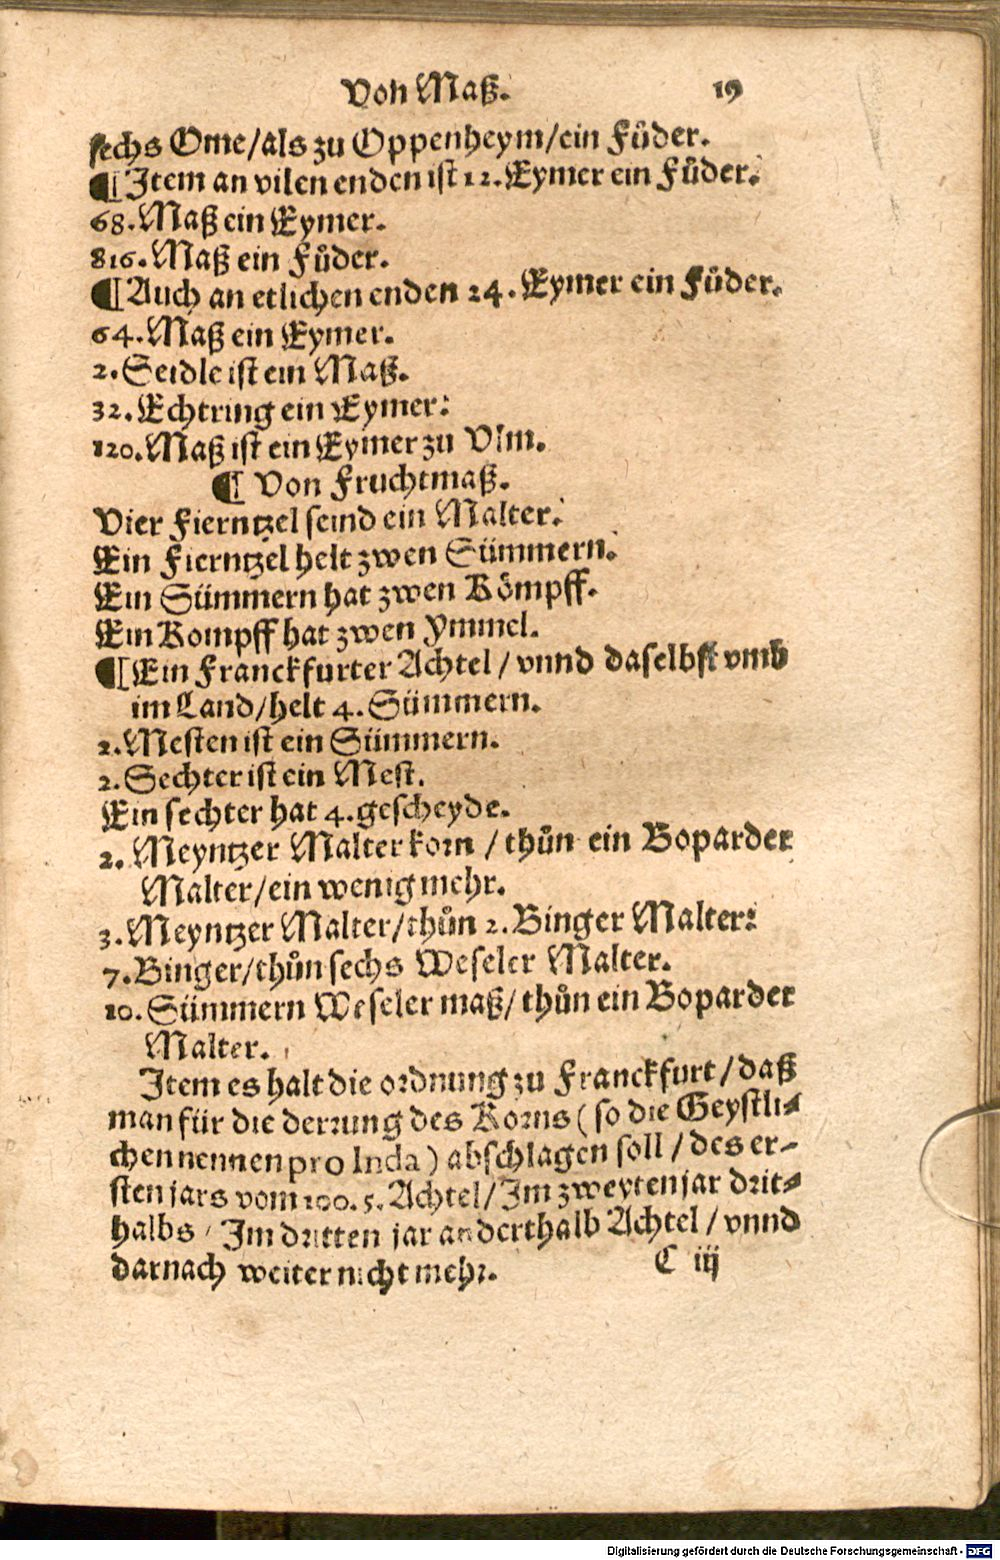 Von Maß. 19
sechs Ome/als zu Oppenheym/ein Fůder.
¶ Item an vilen enden ist 12. Eymer ein Fůder.
68. Maß ein Eymer.
816. Maß ein Fůder.
¶ Auch an etlichen enden 24. Eymer ein Fůder.
64. Maß ein Eymer.
2. Seidle ist ein Maß.
32. Echtring ein Eymer:
120. Maß ist ein Eymer zu Vlm.
¶ Von Fruchtmaß.
Vier Fierntzel seind ein Malter.
Ein Fierntzel helt zwen Sümmern.
Ein Sümmern hat zwen Kömpff.
Ein Kompff hat zwen Ymmel.
¶ Ein Franckfurter Achtel / vnnd daselbst vmb
im Land/helt 4. Sümmern.
2. Mesten ist ein Sümmern.
2. Sechter ist ein Mest.
Ein sechter hat 4. gescheyde.
2. Meyntzer Malter korn / thůn ein Boparder
Malter/ein wenig mehr.
3. Meyntzer Malter/thůn 2. Binger Malter:
7. Binger/thůn sechs Weseler Malter.
10. Sümmern Weseler maß/ thůn ein Boparder
Malter.
Item es halt die ordnung zu Franckfurt / daß
man für die derrung des Korns ( so die Geystli-
chen nennen pro Inda ) abschlagen soll / des er-
sten jars vom 100. 5. Achtel/ Im zweyten jar drit-
halbs / Im dritten jar anderthalb Achtel / vnnd
darnach weiter nicht mehr.
C iij
Digitalisierung gefördert durch die Deutsche Forschungsgemeinschaft - DFG